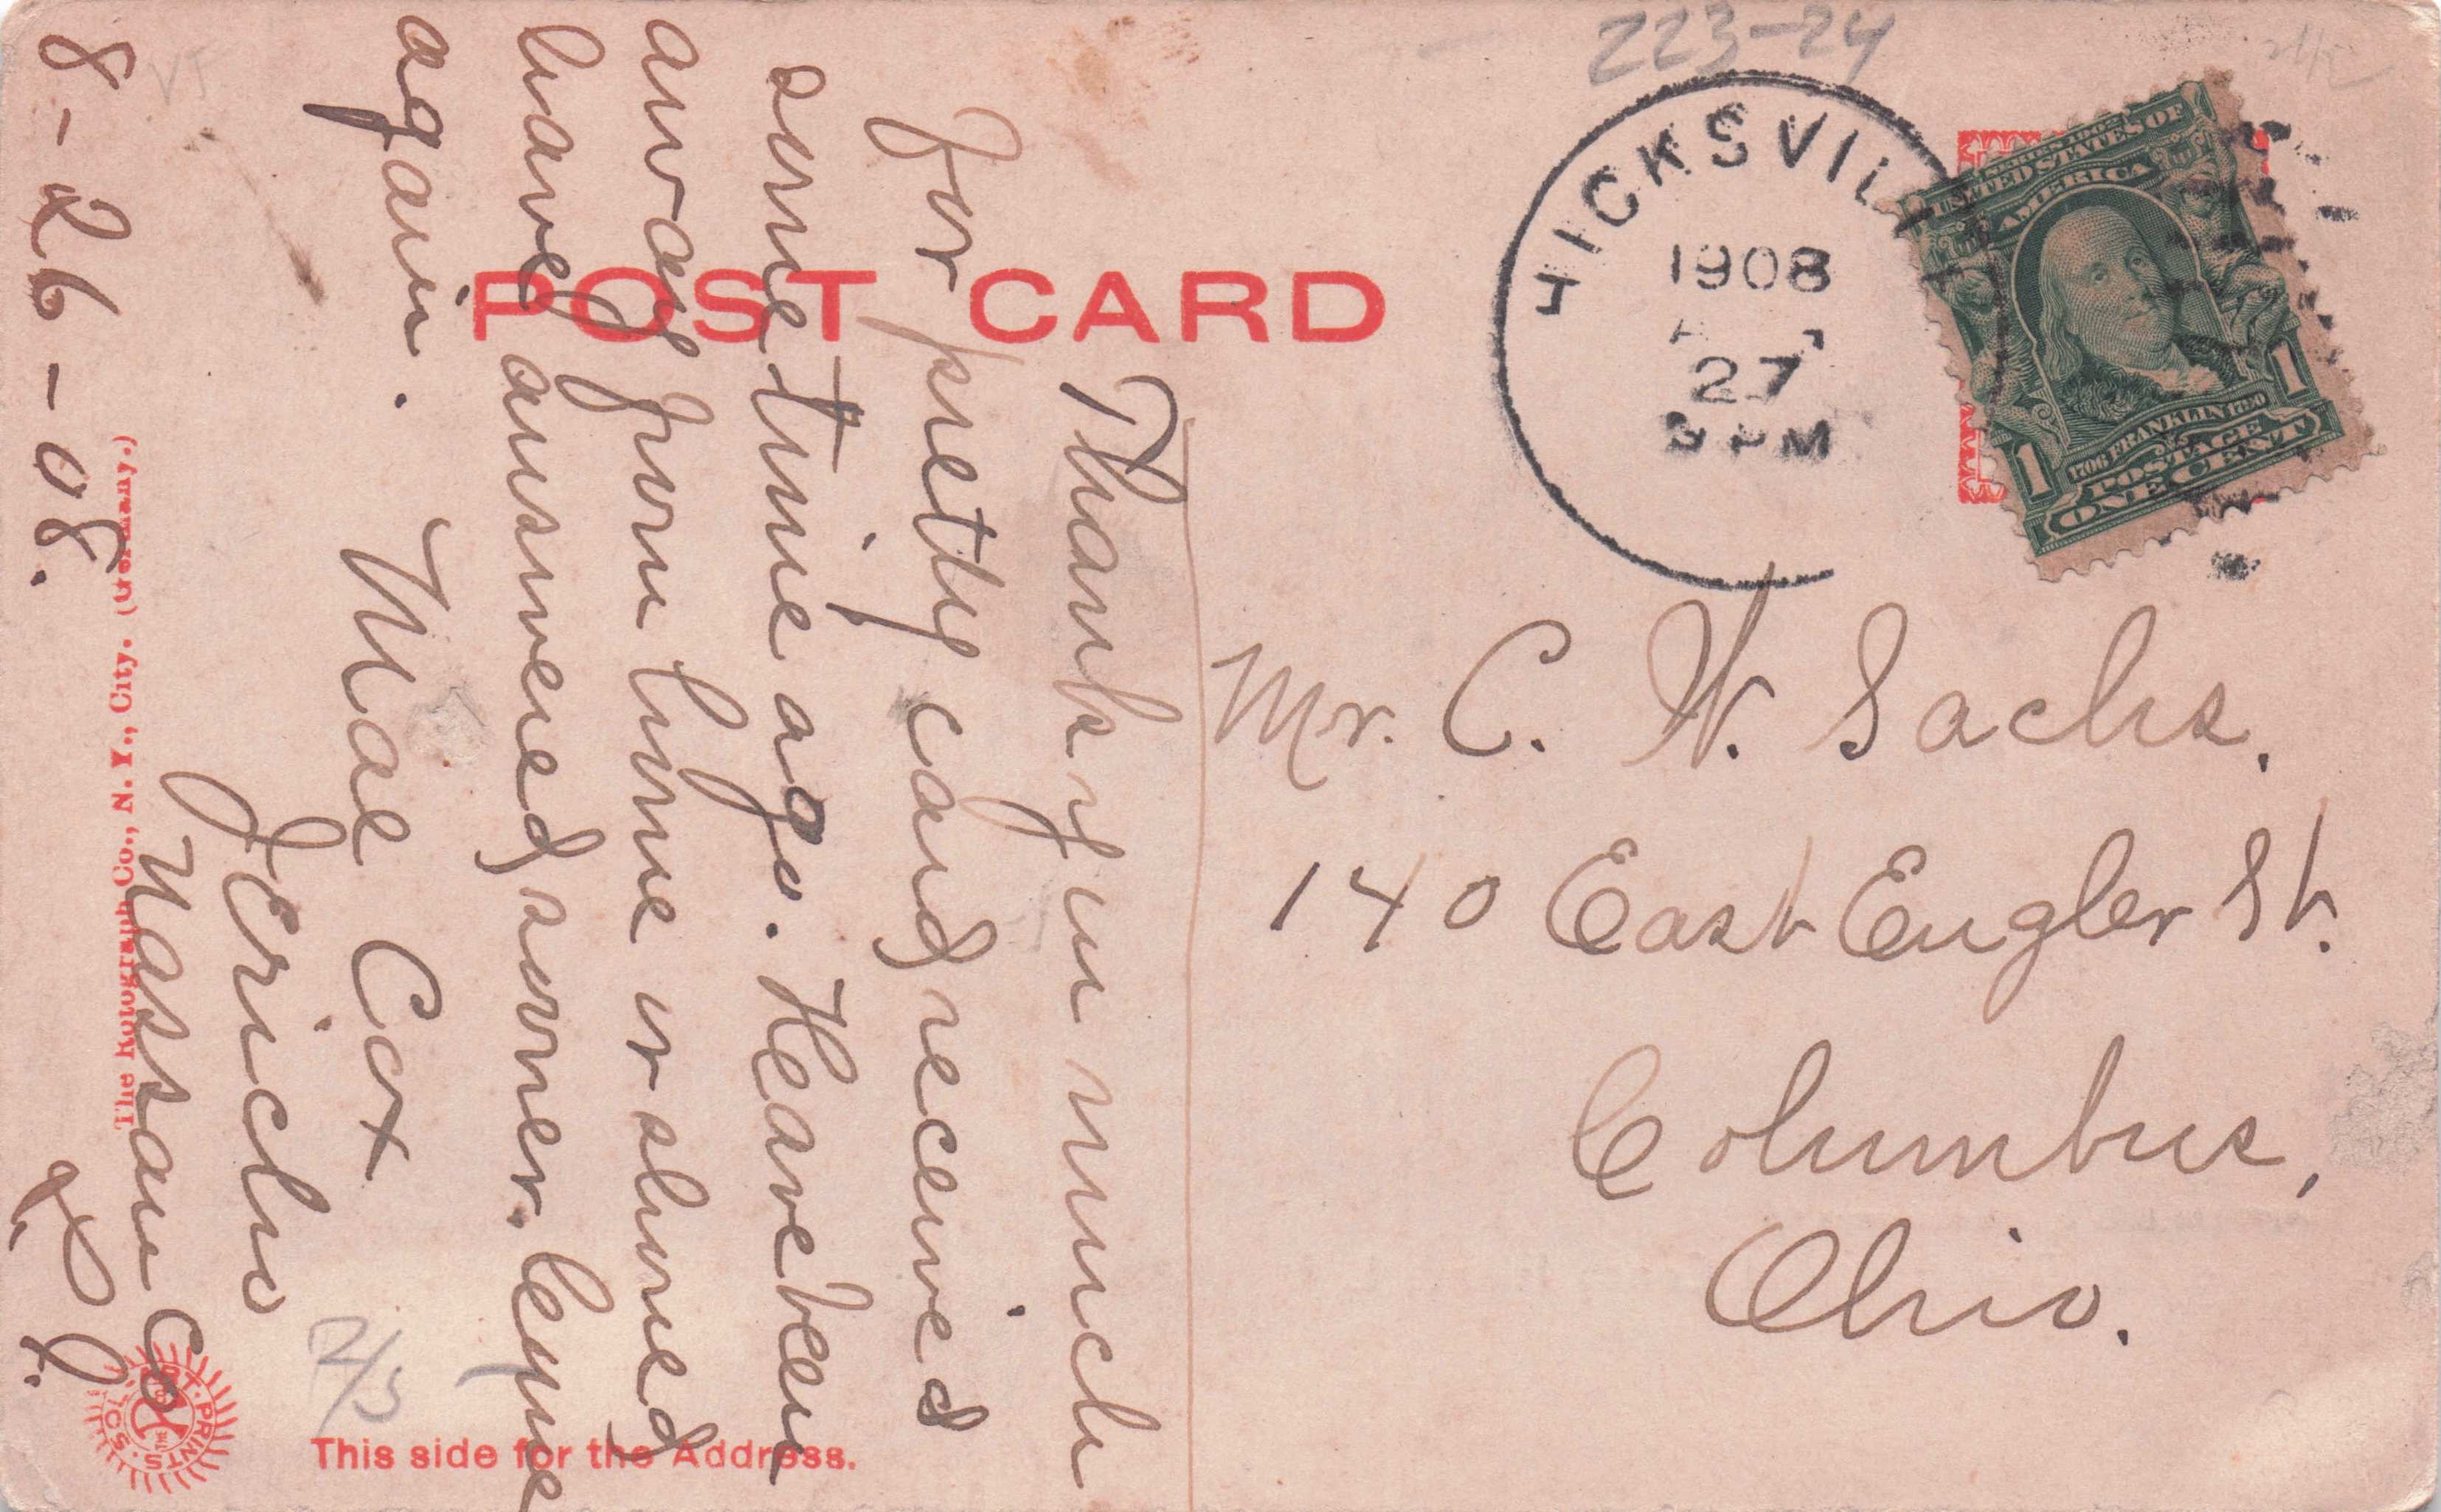 Thank you much
for pretty card received
some time ago. Have been
away from home or should
have answered sooner. Come
again. Mae Cox
Jericho
Nassau Co
L. I.
8-26-08.
POST CARD
HICKSVILL
1908
27
PM
223-24
SERIES 1902
UNITED STATES OF
AMERICA
1706 FRANKLIN 1790
POSTAGE
1 ONE CENT 1
Mr. C. W. Sachs.
140 East Engler St.
Columbus,
Ohio.
The Rotograph Co., N. Y., City. (Germany.)
This side for the Address.